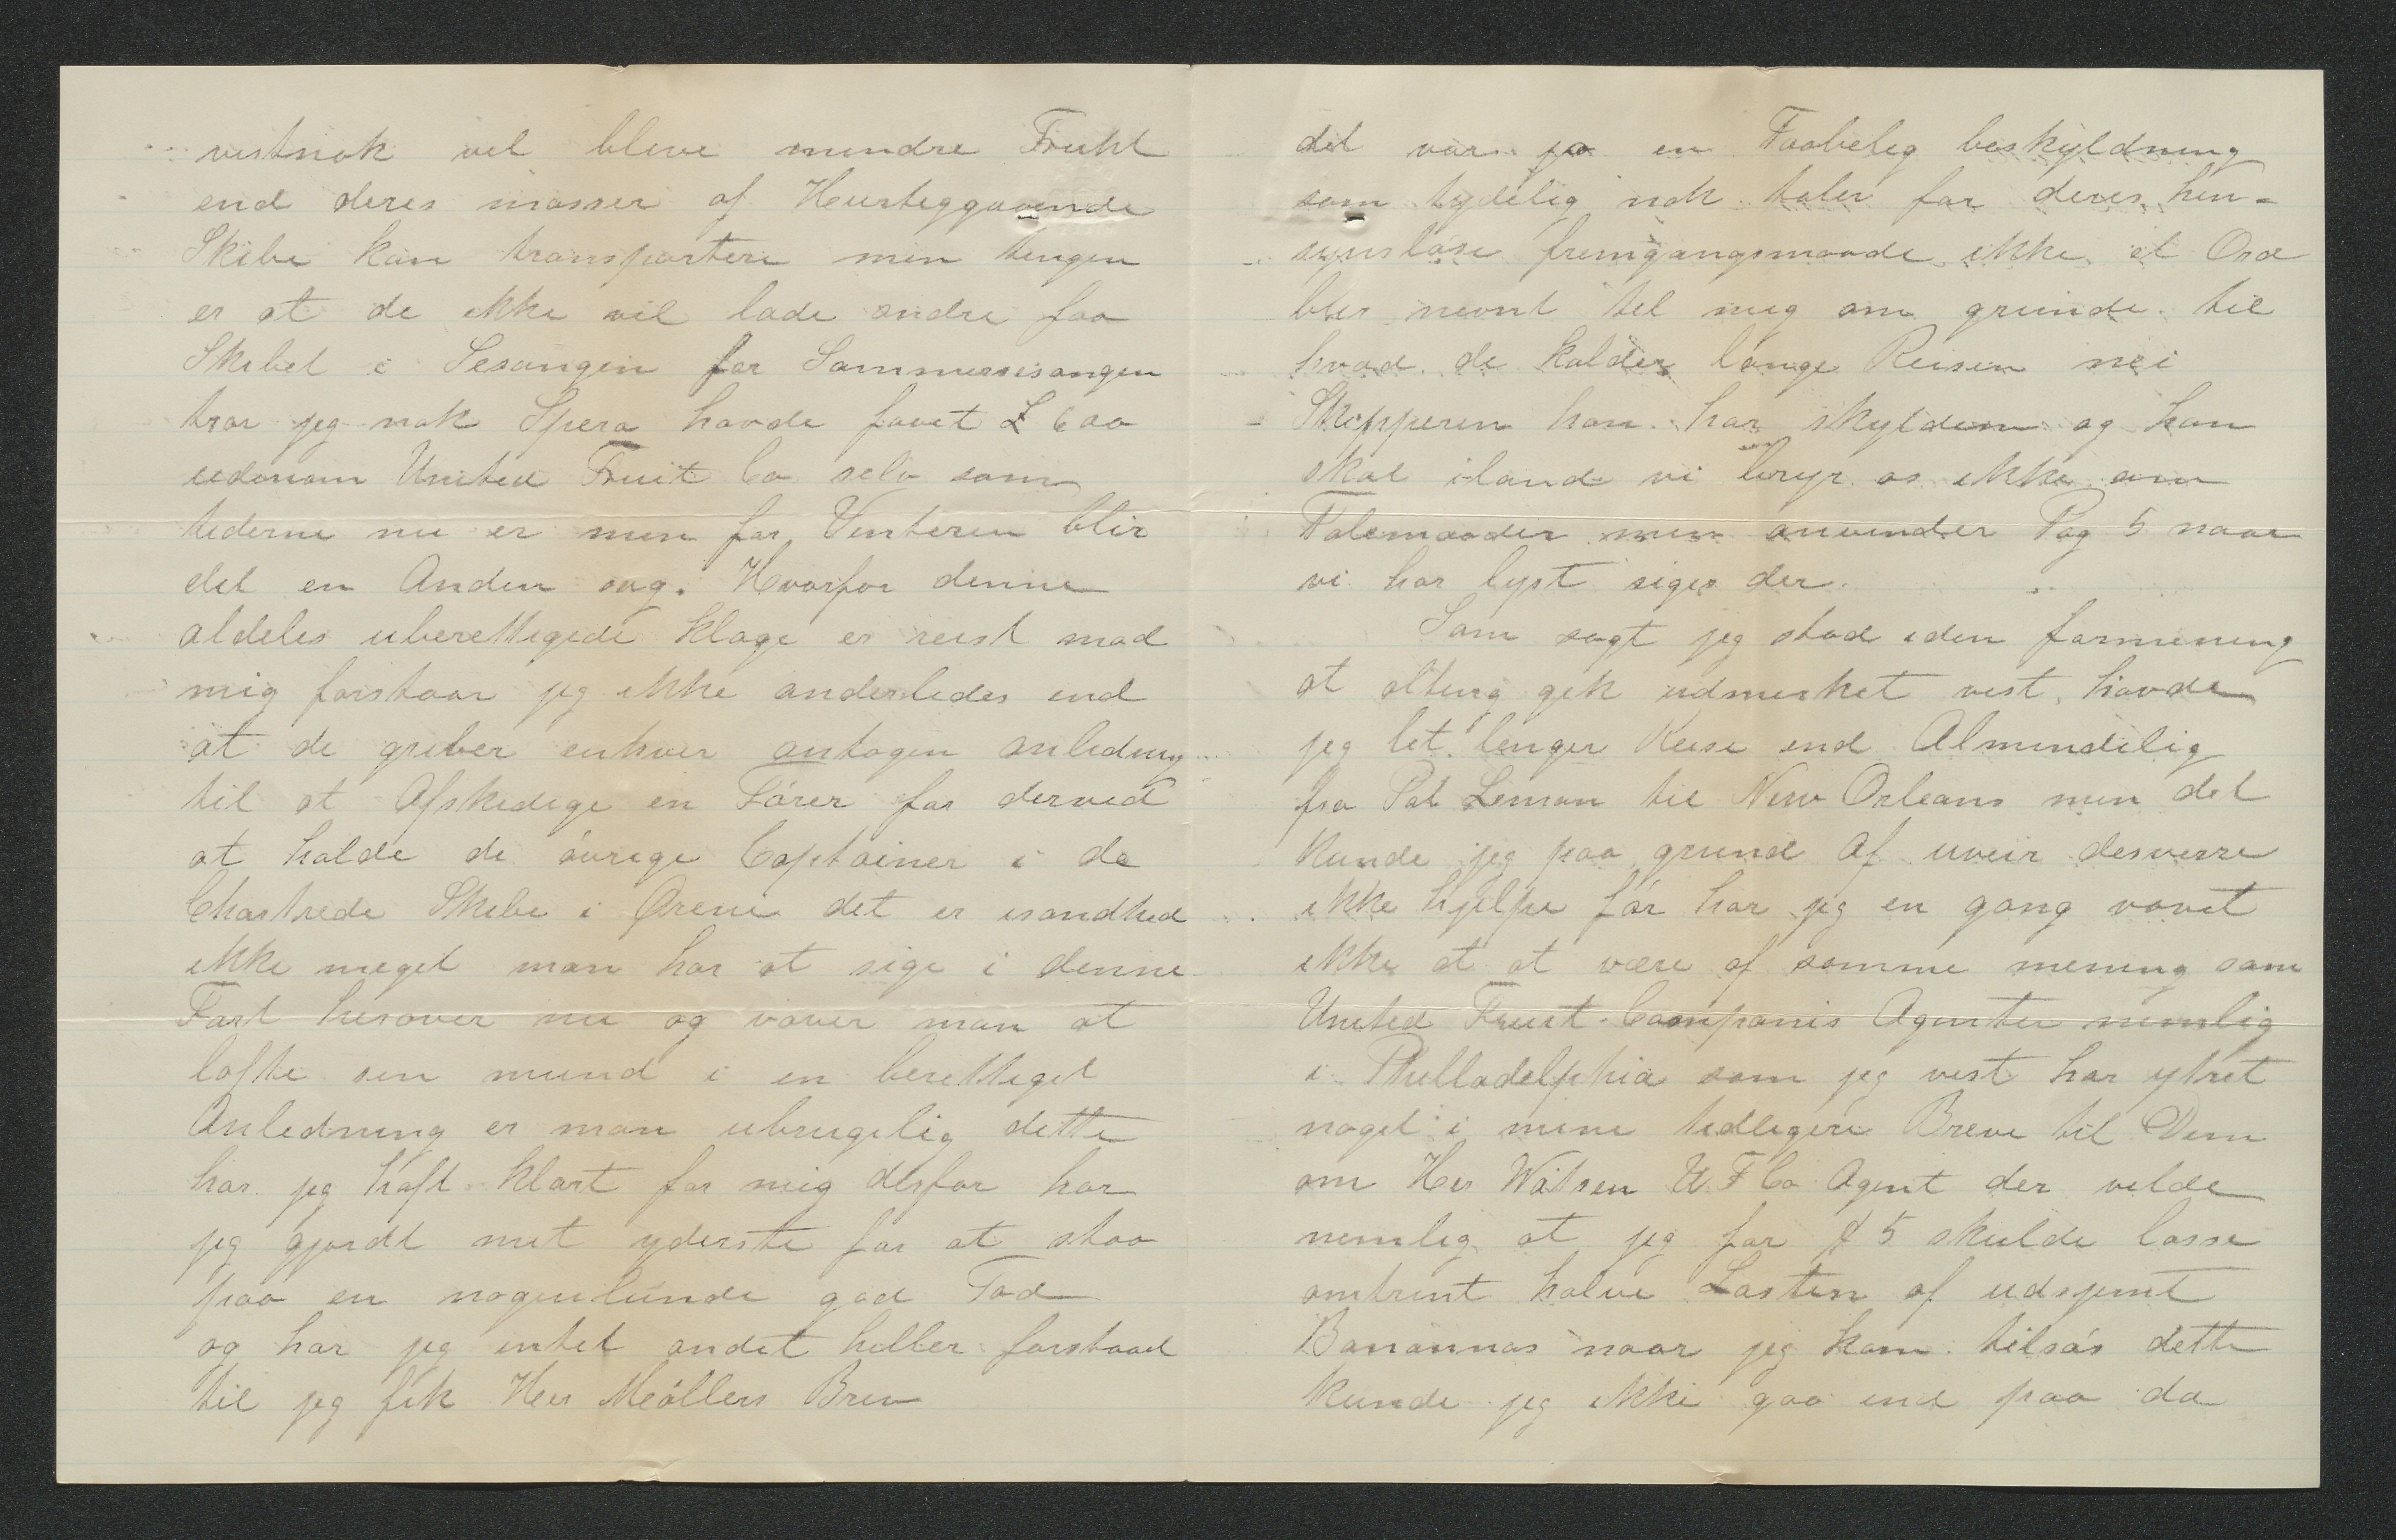 vistnok vil blive mindre Frukt
end deres masser af Hurteggaaende
Skibe kan transportere men tingen
er at de ikke vil lade andre faa
Skibet i Sesongen for Sommersesongen
tror jeg nok Spero havde faaet £ 600
udenom United Fruit Co selv som
tiderne nu er men for Vinteren blir
det en Anden sag. Hvorfor denne
aldeles uberettigede klage er reist mod
mig forstaar jeg ikke anderledes end
at de griber enhver antagen anledning
til at Afskedige en Fører for derved
at holde de øvrige Captainer i de
Chartrede Skibe i Ørene det er isandhed
ikke meget man har at sige i denne
Fart herover nu og vover man at
løfte sin mund i en berettiget
Anledning er man ubrugelig dette
har jeg haft klart for mig derfor har
jeg gjordt mit yderste for at staa
paa en nogenlunde god Fod
og har jeg intet andet heller forstaad
til jeg fik Her Møllers Brev
det var jo en Faabelig beskyldning
som tydelig nok taler for deres hen-
synsløse fremgangsmaade ikke et Ord
blir nevnt til mig om grunde til
hvad de kalder lange Reisen nei
Skipperen han har skylden og han
skal iland vi bryr os ikke om
Talemaader men anvender Pag 5 naar
vi har lyst siges der.
Som sagt jeg stod iden formening
at alting gik udmerket vist havde
jeg let lenger Reise end Almindelig
fra Pat Lemon til New Orleans men det
kunde jeg paa grund af uveir desverre
ikke hjelpe før har jeg en gang vovet
ikke at at være af samme mening som
United Fruit Companis Agenter nemlig
i Philladelphia som jeg vist har ytret
noget i mine tidligere Breve til Dem
om Her Watsen U. F Co Agent der vilde
nemlig at jeg for § 5 skulde losse
omtrent halve Lasten af udsjemt
Banannas naar jeg kom tilsøs dette
kunde jeg ikke gaa ind paa da